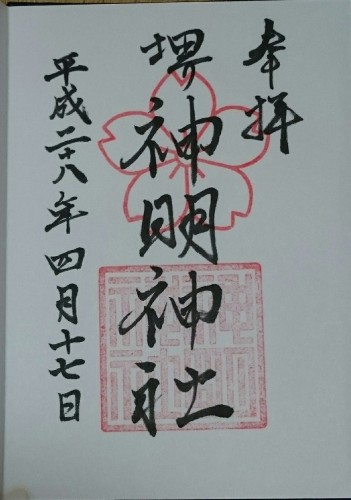 奉拝
堺神明神社
平成二十八年四月十七日